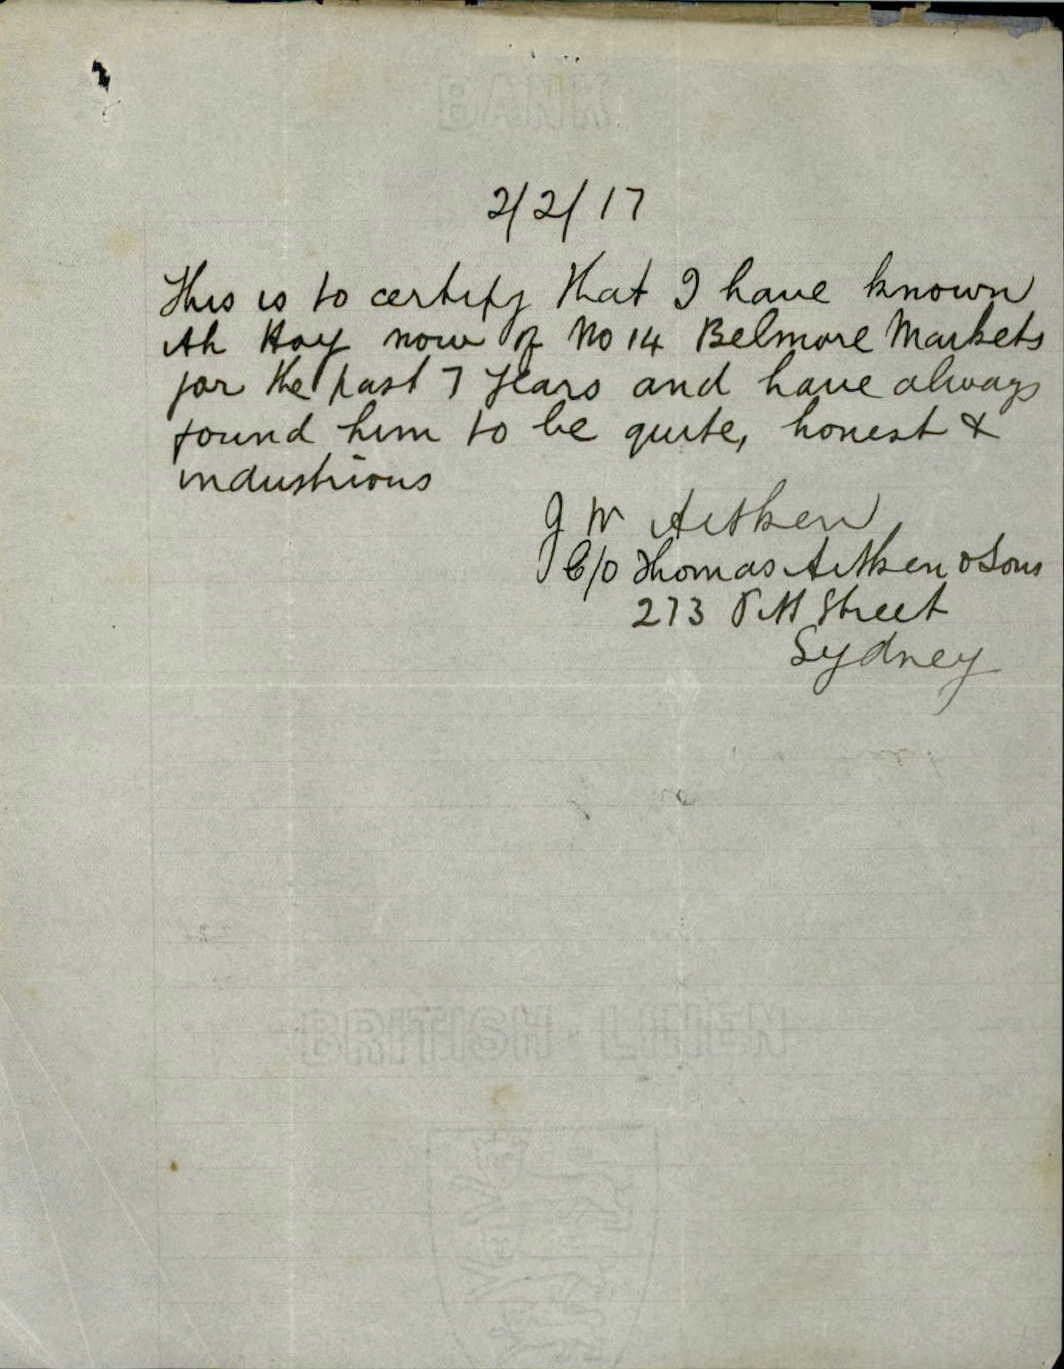 BANK
2/2/17
This is to certify that I have known
Ah Hoy now of No 14 Belmore Markets
for the past 7 years and have always
found him to be quite, honest &
industrious
J W Aitken
C/o Thomas Aitken & Sons
273 Pitt Street
Sydney
BRITISH · LINEN